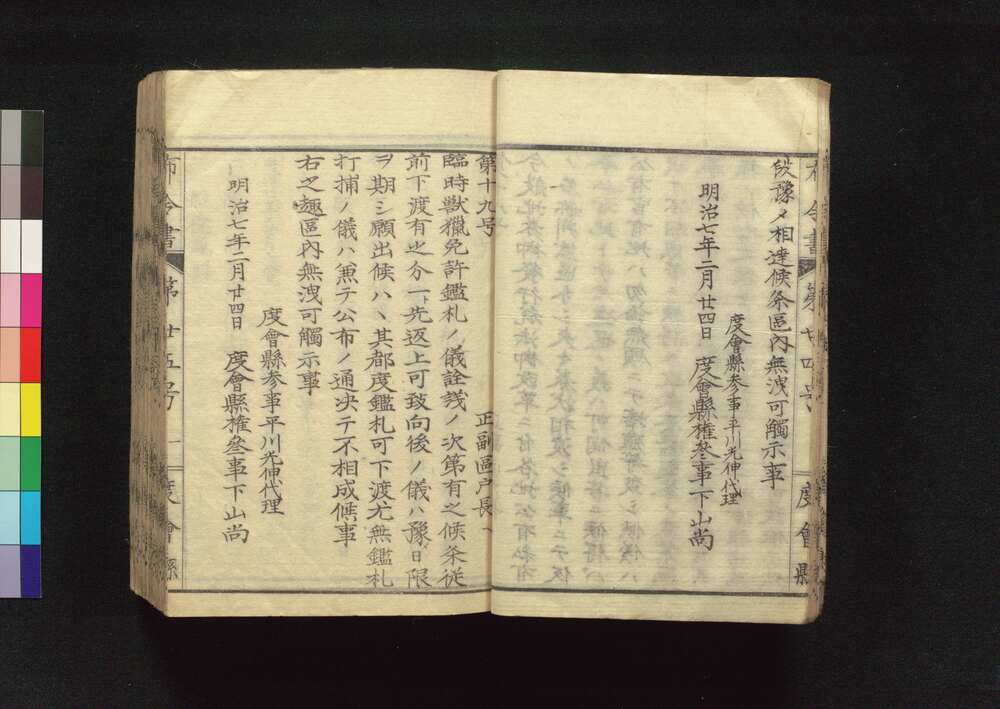 布令書 第廿四号 度會縣
段豫メ相達候条區内無洩可觸示事
度會縣参事平川光伸代理
明治七年二月廿四日 度會縣權叅事下山尚
第十九号 正副區戸長
臨時獣獵免許鑑札ノ儀詮議ノ次第有之候条従
前下渡有之分一ト先返上可致向後ノ儀ハ豫日限
ヲ期シ願出候ハヽ其都度鑑札可下渡尤無鑑札
打捕ノ儀ハ兼テ公布ノ通決テ不相成候事
右之趣區内無洩可觸示事
度會縣参事平川光伸代理
明治七年二月廿四日 度會縣權叅事下山尚
布令書 第廿五号 一 度會縣